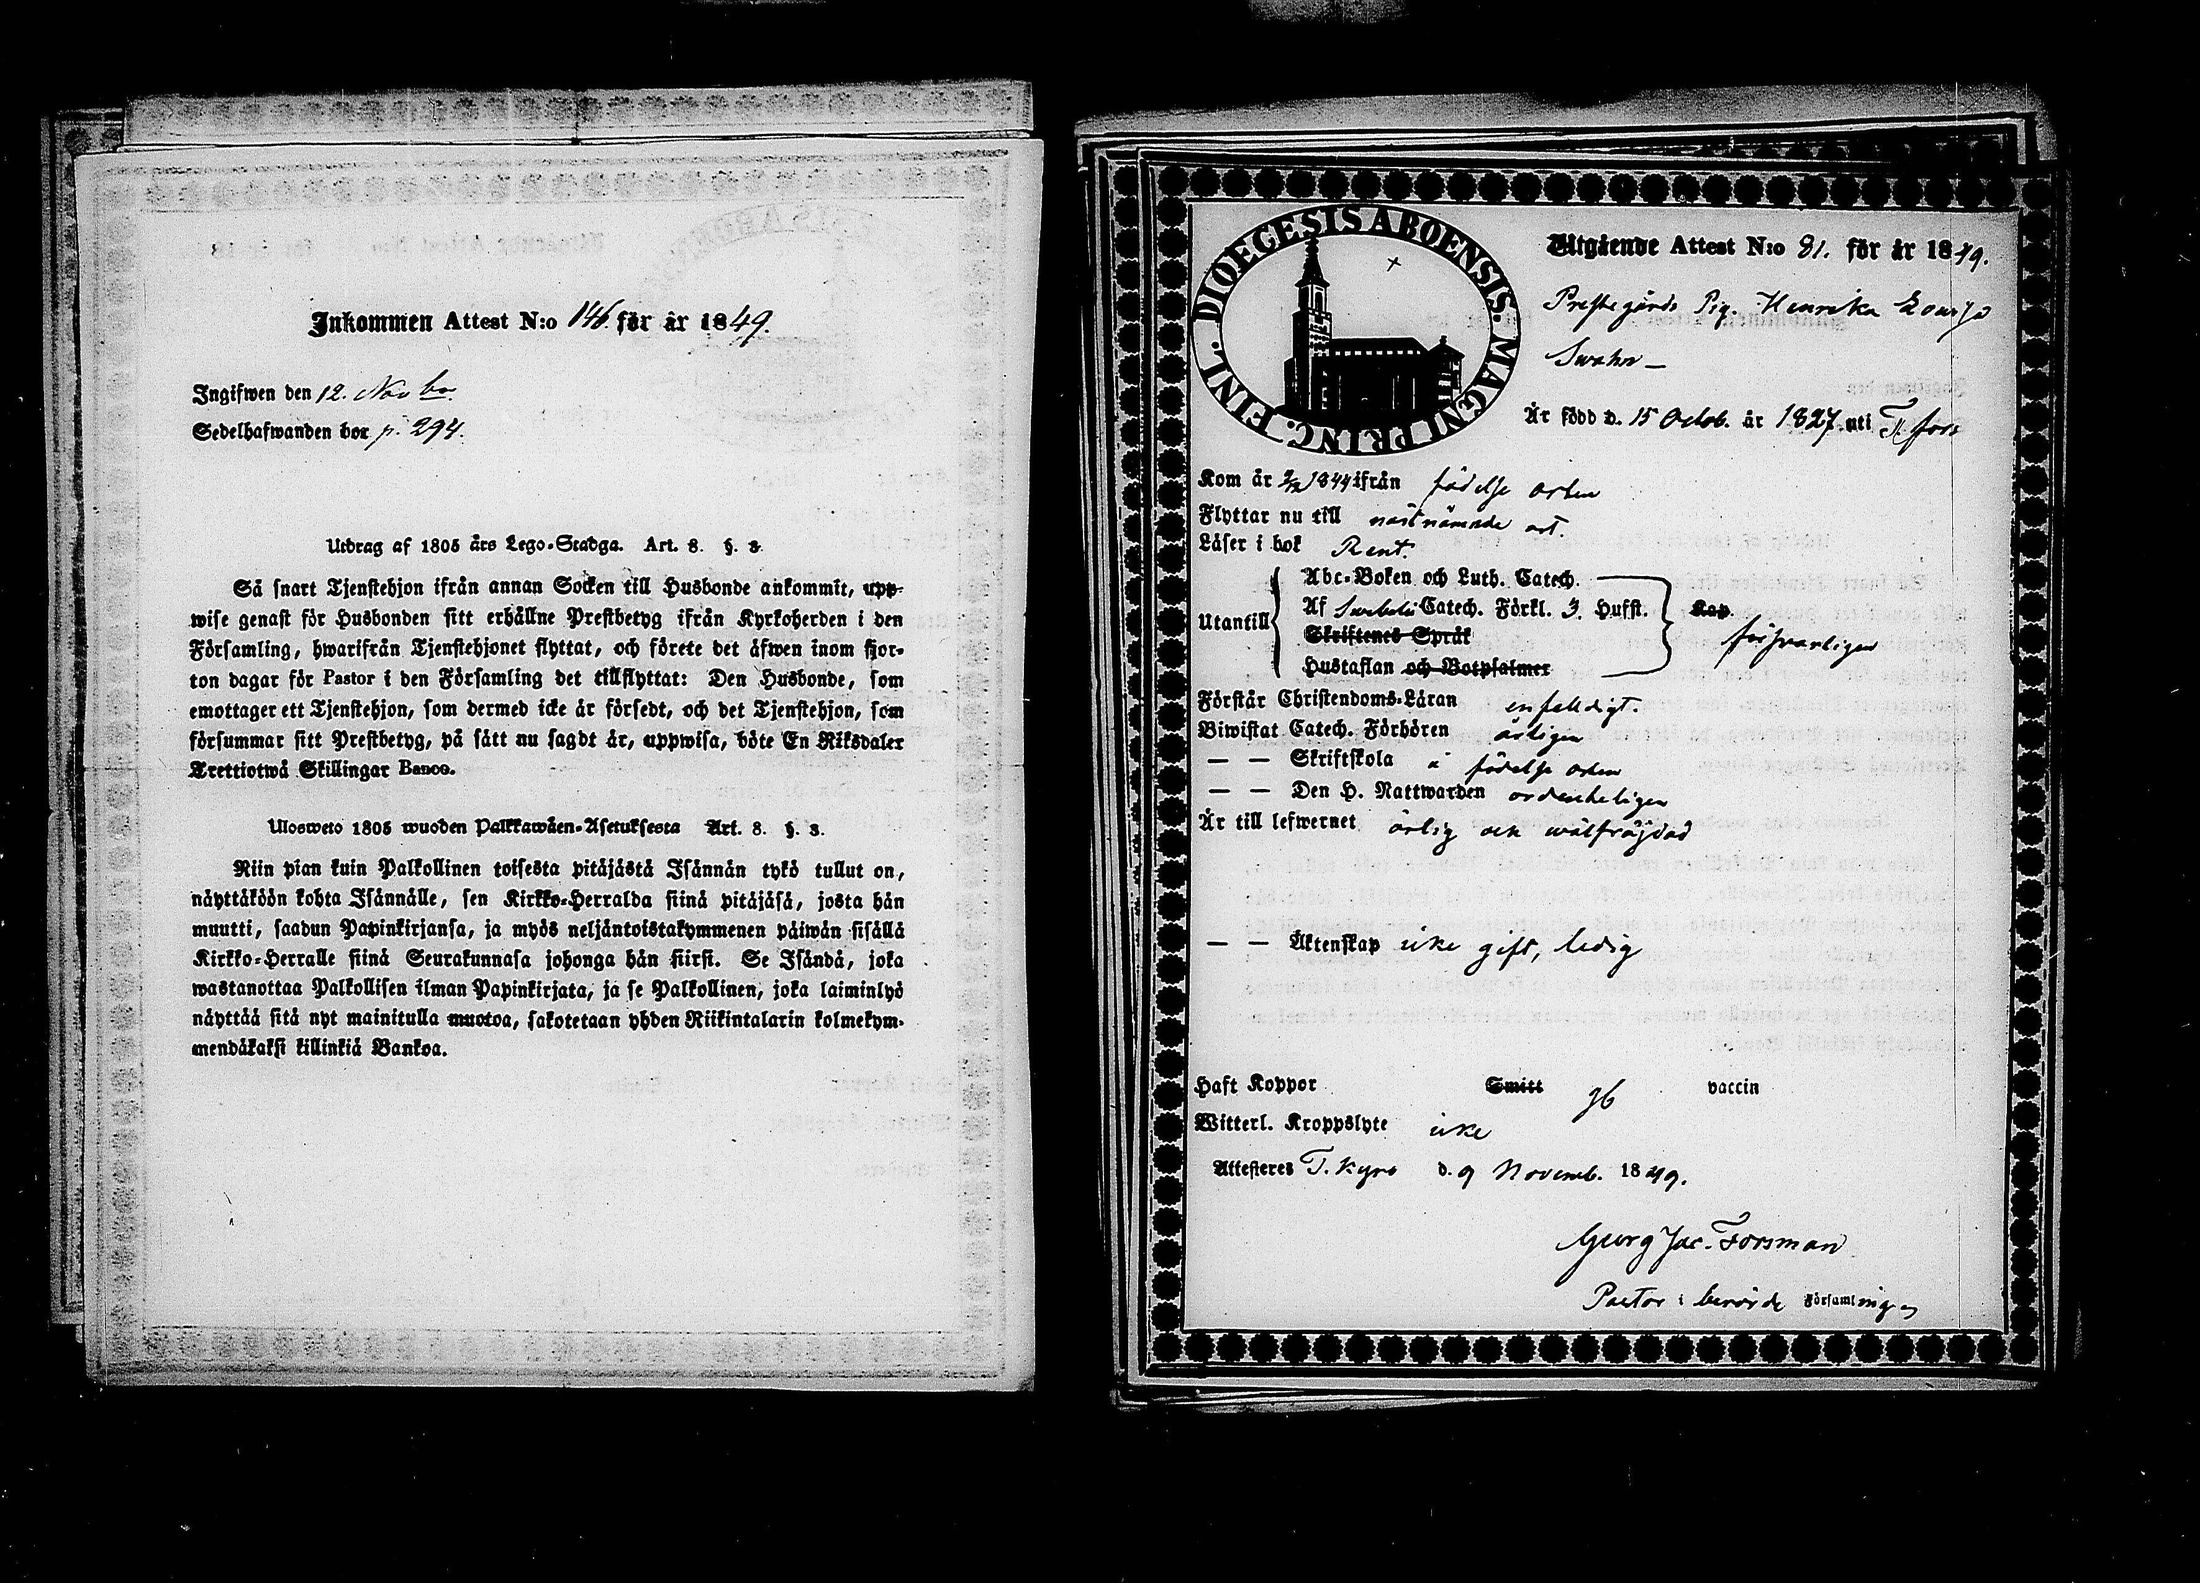 Inkommen Attest N:o 146. för år 1849.
Ingifwen den 12. Novbr.
Sedelhafwanden bor p. 294.
Utdrag af 1805 års Lego-Stadga. Art. 8. §. 3.
Så snart Tjenstehjon ifrån annan Socken till Husbonde ankommit, upp-
wise genast för Husbonden sitt erhållne Prestbetyg ifrån Kyrkoherden i den
Församling, hwarifrån Tjenstehjonet flyttat, och förete det äfwen inom fjor-
ton dagar för Pastor i den Församling det tillflyttat: Den Husbonde, som
emottager ett Tjenstehjon, som dermed icke är försedt, och det Tjenstehjon, som
försummar sitt Prestbetyg, på sätt nu sagdt är, uppwisa, böte En Riksdaler
Trettiotwå Skillingar Banco.
Ulosweto 1805 wuoden Palkkawäen-Asetuksesta Art. 8. §. 3.
Niin pian kuin Palkollinen toisesta pitäjästä Isännän tykö tullut on,
näyttäköön kohta Isännälle, sen Kirkko-Herralda siinä pitäjäsä, josta hän
muutti, saadun Papinkirjansa, ja myös neljäntoistakymmenen päiwän sisällä
Kirkko-Herralle siinä Seurakunnasa johonga hän siirsi. Se Isändä, joka
wastanottaa Palkollisen ilman Papinkirjata, ja se Palkollinen, joka laiminlyö
näyttää sitä nyt mainitulla muotoa, sakotetaan yhden Riikintalarin kolmekym-
mendäkaksi killinkiä Bankoa.
DIOECESIS ABOENSIS. MAGNI PRINC. FINL.
Utgående Attest N:o 81. för år 1849.
Prestegårds Pig. Henrika Lovisa
Swahn
Är född d. 15 Octob. år 1827 uti T. fors
Kom år 1844 ifrån födelse orten
Flyttar nu till nästnämnde ort.
Läser i bok Rent.
Utantill
Abc-Boken och Luth. Catech.
Af Swebelii Catech. Förkl. 3. Hufst.
Skriftenes Språk
Hustaflan och Botpsalmer
Kap.
försvarligen
Förstår Christendoms-Läran enfaldigt.
Biwistat Catech. Förhören årligen
— — Skriftskola i födelse orten
— — Den H. Nattwarden ordenteligen
Är till lefwernet ärlig och wälfräjdad
— — Äktenskap icke gift, ledig
Haft Koppor Smitt gb vaccin
Witterl. Kroppslyte icke
Attesteres T. Kyro d. 9 Novemb. 1849.
Georg Jac. Forsman
Pastor i berörde Församlingen